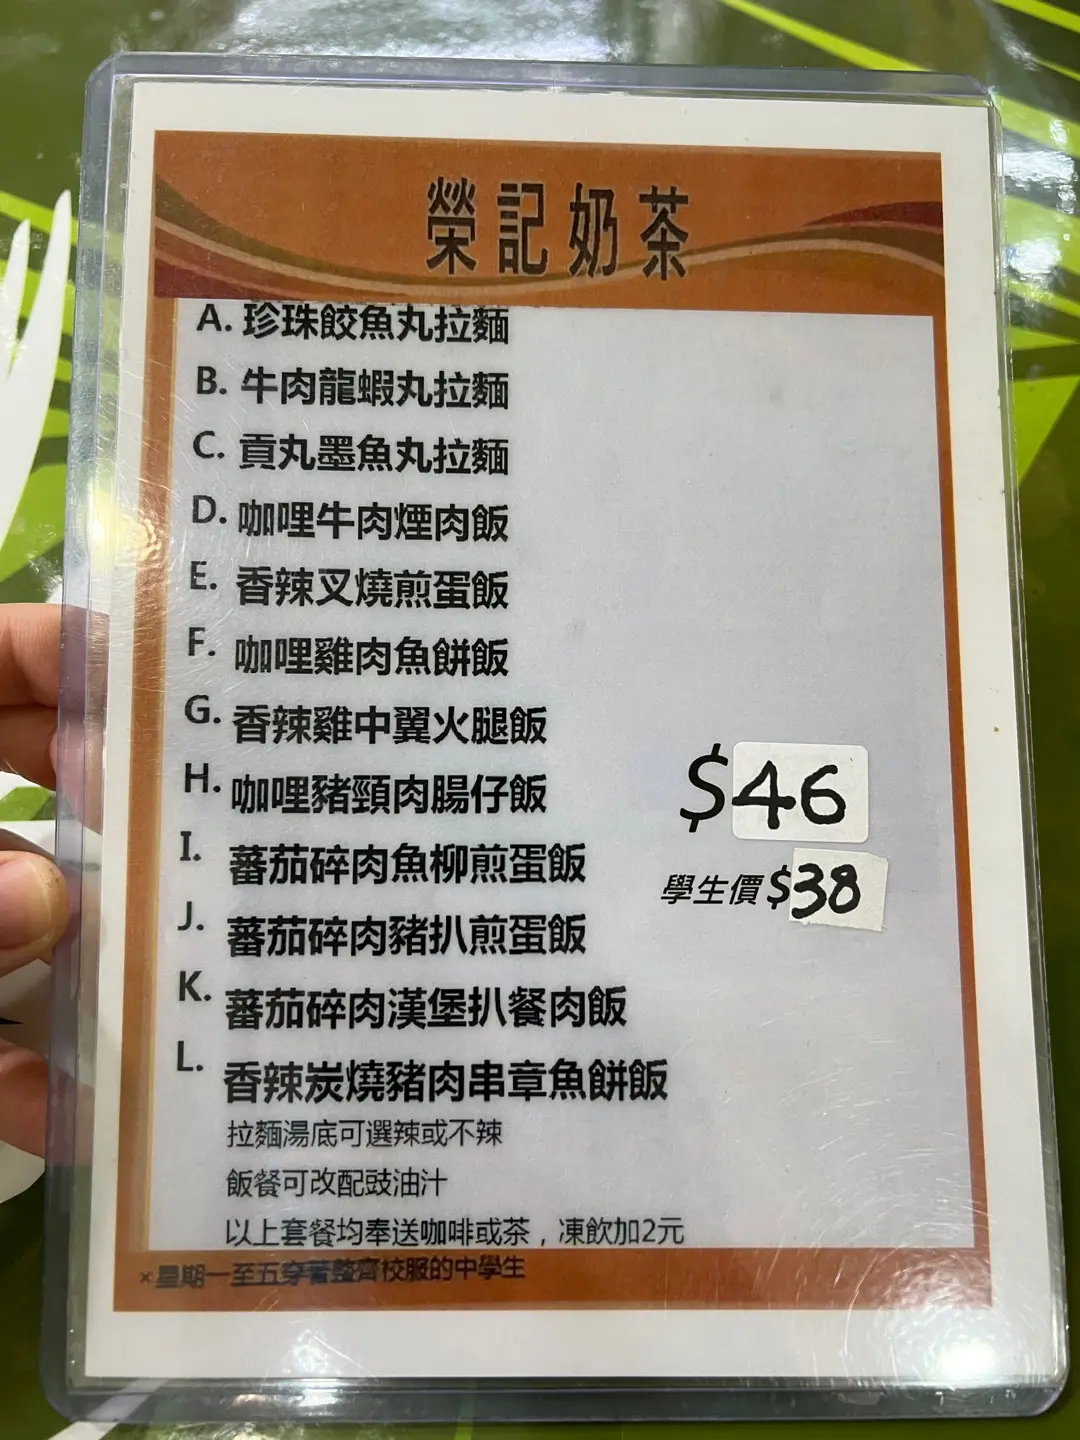 榮記奶茶
A. 珍珠餃魚丸拉麵
B. 牛肉龍蝦丸拉麵
C. 貢丸墨魚丸拉麵
D. 咖哩牛肉煙肉飯
E. 香辣叉燒煎蛋飯
F. 咖哩雞肉魚餅飯
G. 香辣雞中翼火腿飯
H. 咖哩豬頸肉腸仔飯
I. 蕃茄碎肉魚柳煎蛋飯
J. 蕃茄碎肉豬扒煎蛋飯
K. 蕃茄碎肉漢堡扒餐肉飯
L. 香辣炭燒豬肉串章魚餅飯
$46
學生價$38
拉麵湯底可選辣或不辣
飯餐可改配豉油汁
以上套餐均奉送咖啡或茶，凍飲加2元
×星期一至五穿著整齊校服的中學生